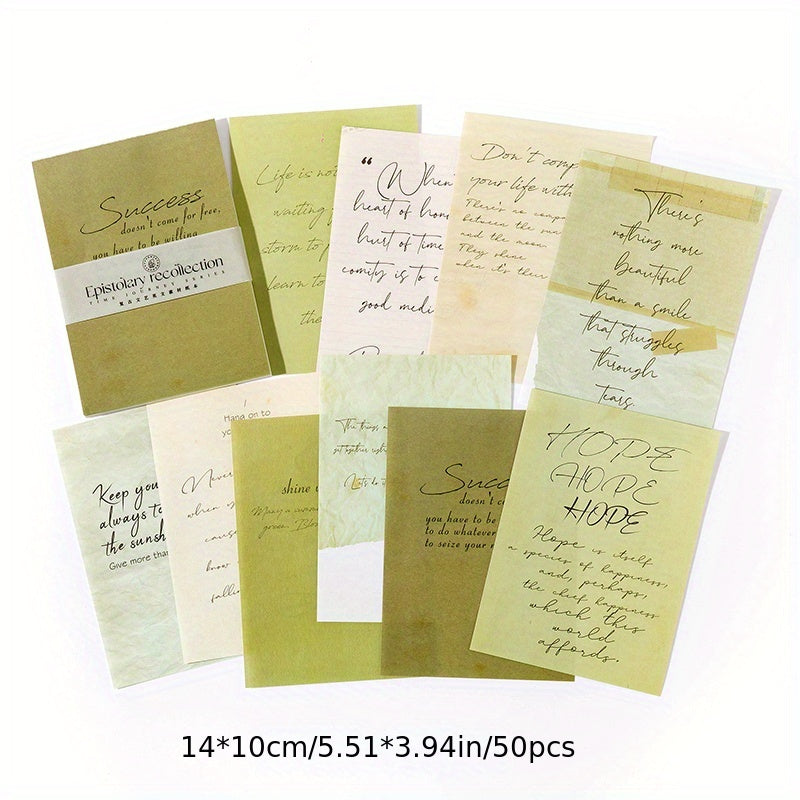 Success
doesn't come for free,
you have to be willing
Epistolary recollection
TIME JOURNEY SERIES
Life is not
waiting
storm to p
learn to
the
“When
heart of hon
hurt of time
comity is to c
good medi
Don't comp
your life with
There's no compa
between the sun
and the moon
They shine
when it's their
There's
nothing more
beautiful
than a smile
that struggles
through
tears.
Keep you
always to
the sunsh
Give more than
Hang on to
yo
Never
when y
cause
know
falli
shine
Many a
green. Blo
The things a
put together righ
Let's do i
Succ
doesn't co
you have to be
to do whatever
to seize your
HOPE
HOPE
HOPE
Hope is itself
a species of happiness,
and, perhaps,
the chief happiness
which this
world
affords.
14*10cm/5.51*3.94in/50pcs